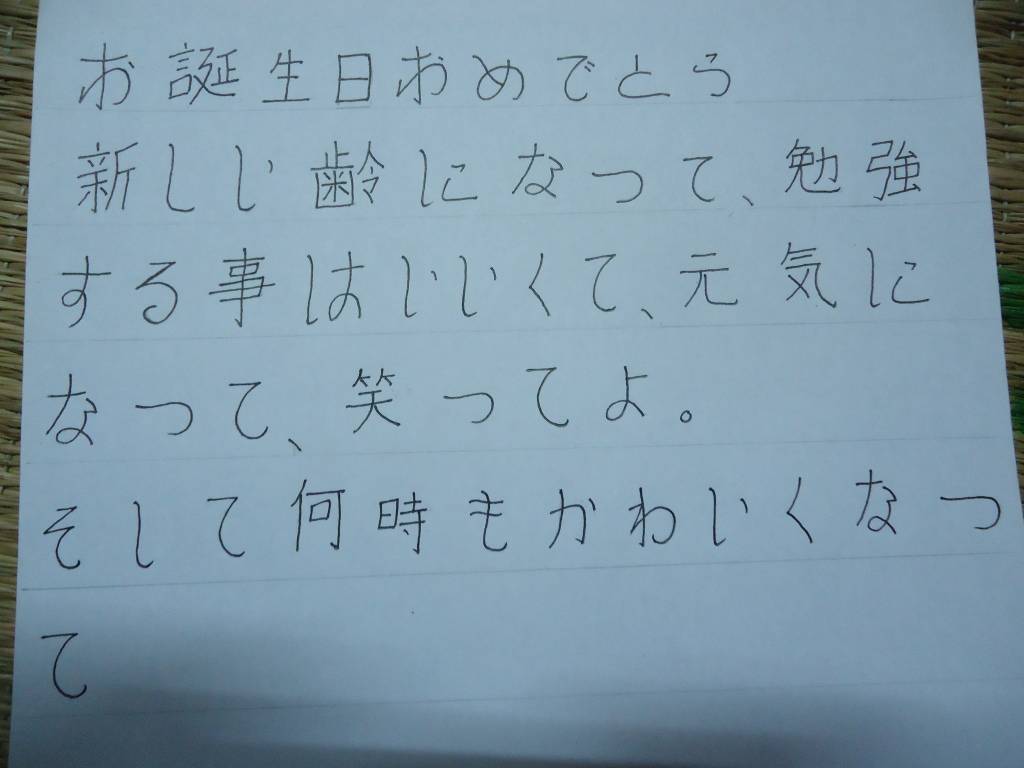 お誕生日おめでとう
新しい齢になって、勉強
する事はいいくて、元気に
なって、笑ってよ。
そして何時もかわいくなっ
て